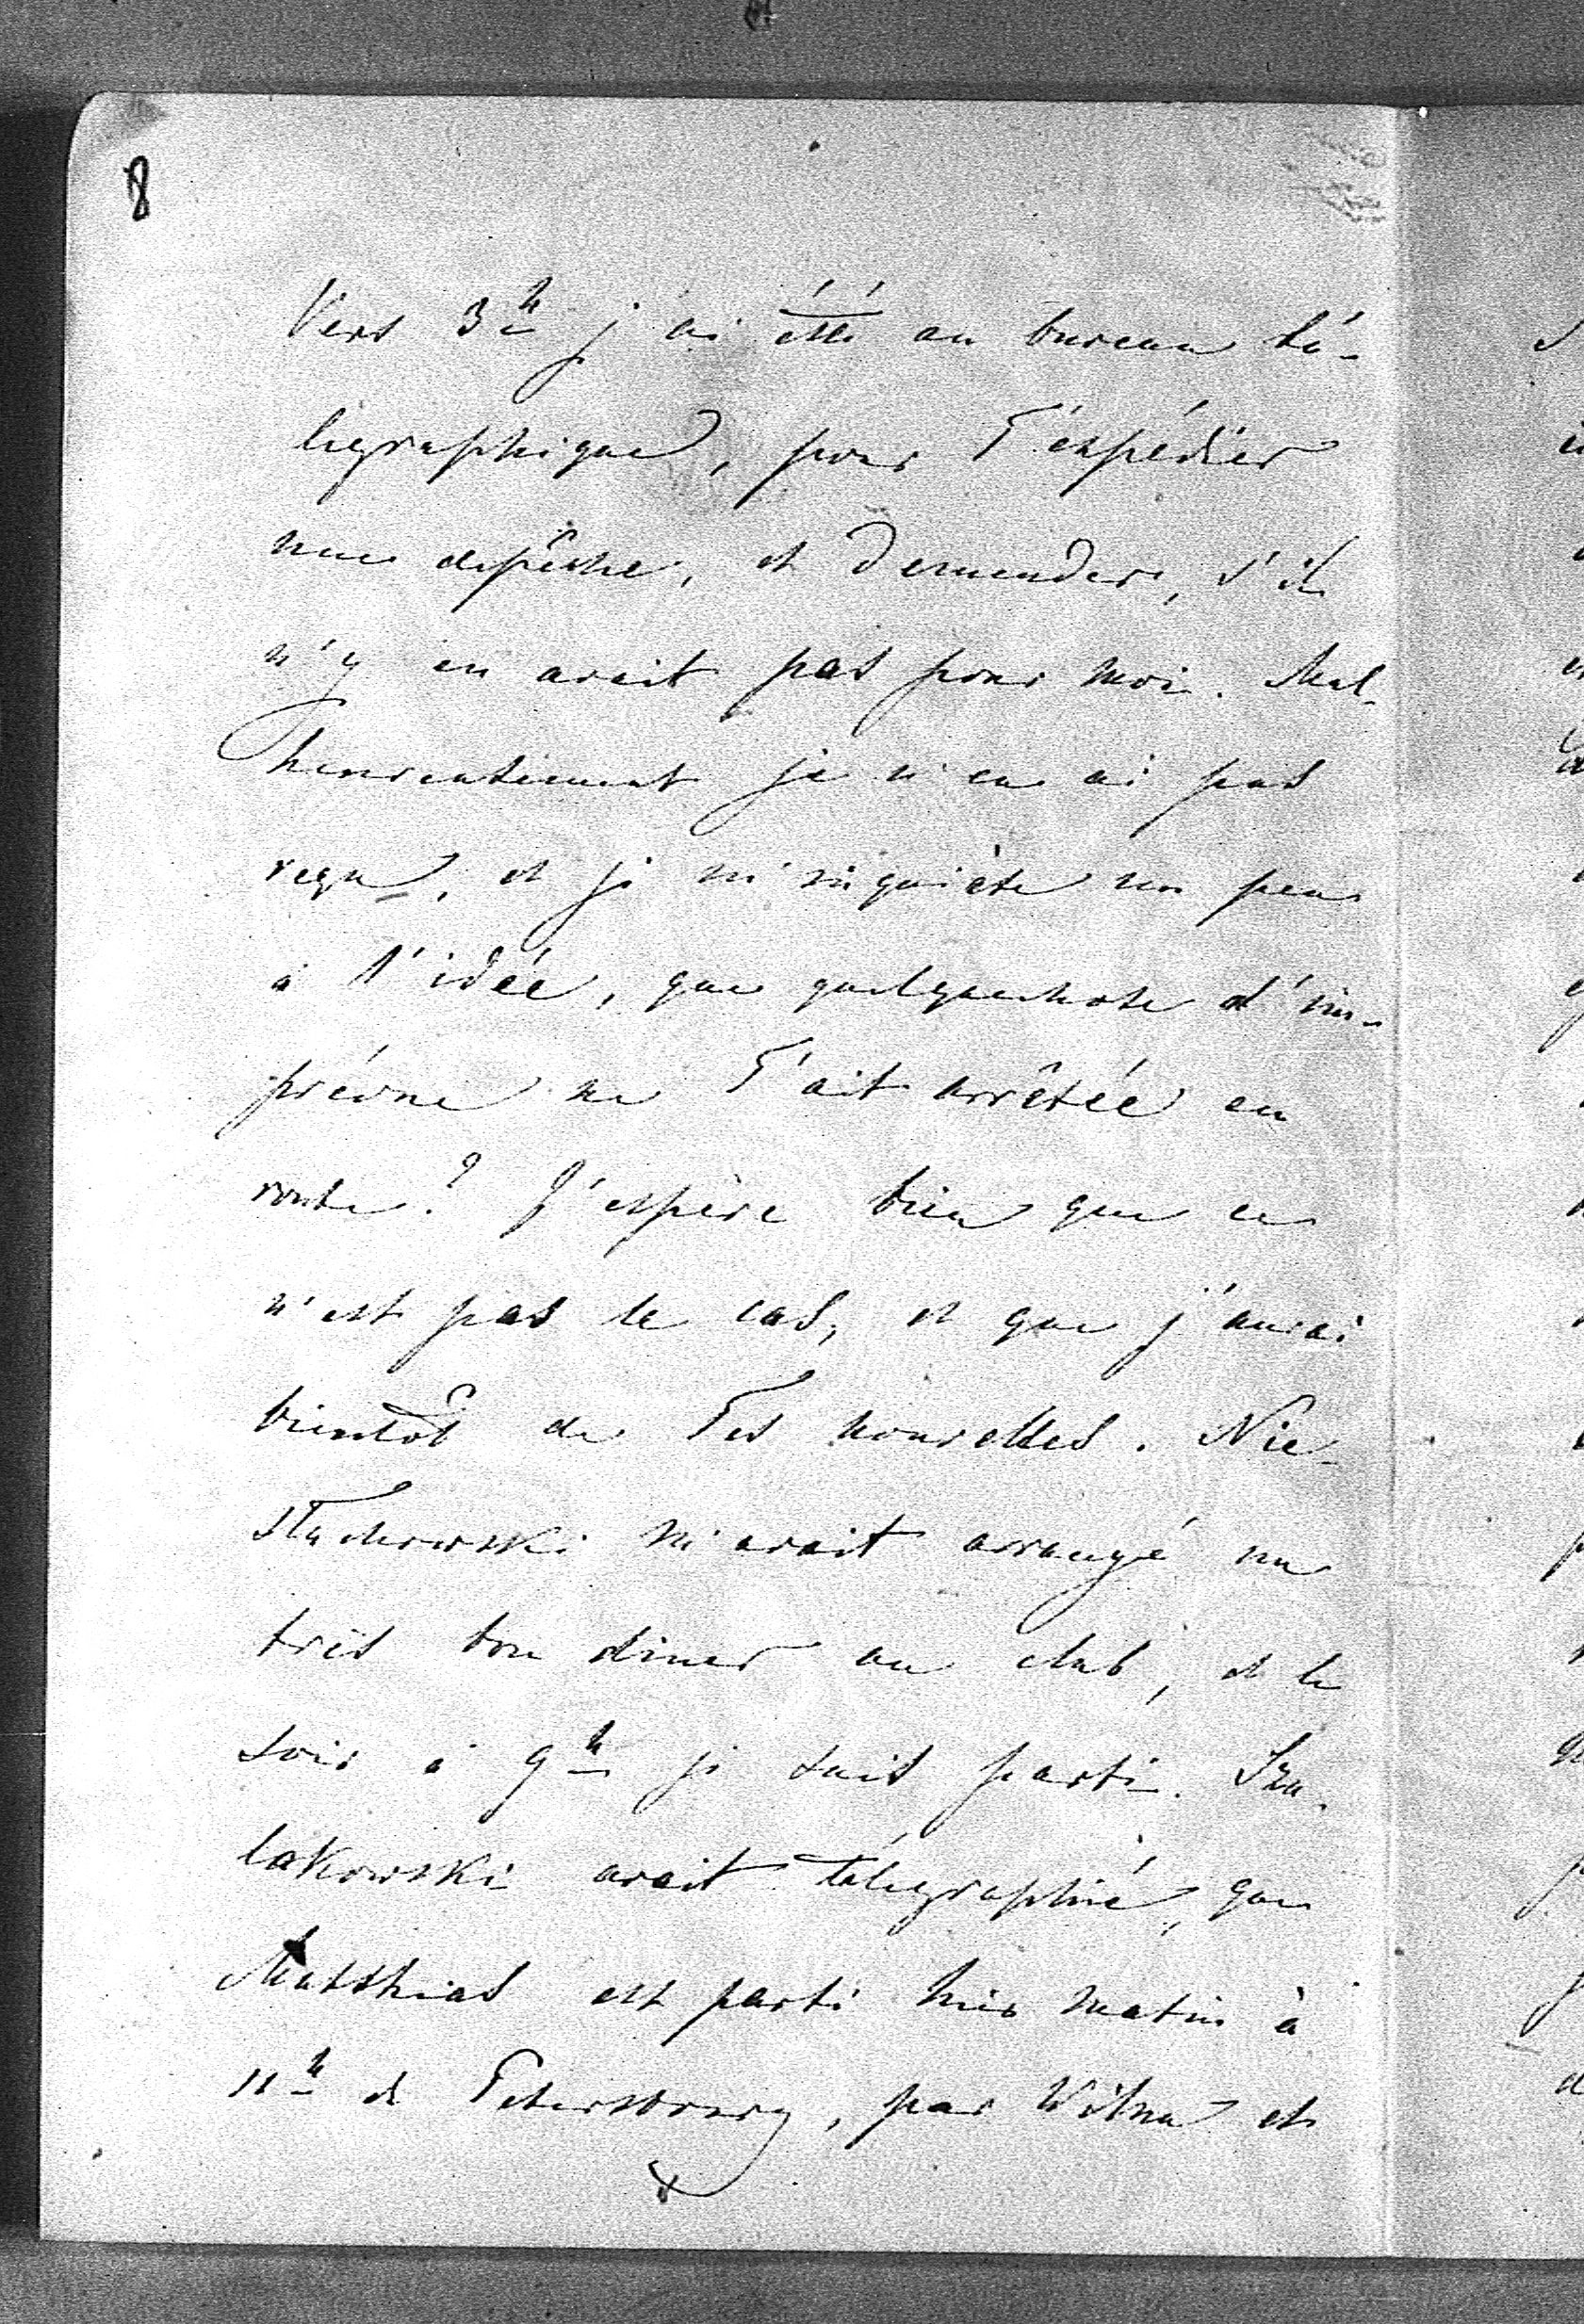 8
Vers 3h j'ai été au bureau té-
legraphique, pour T'éxpédier
une depêche, et demander, s'il
n'y en avait pas pour moi. Mal-
heureusement je n'en ai pas
reçu, et je m'inquiète un peu
à l'idée, que quelquechose d'im-
prévue ne T'ait arrêtée en
route? J'espère bien que ce
n'est pas le cas, et que j'aurai
bientôt de Tes nouvelles. Nie-
stuchowski m'avait arrangé un
très bon diner au club, et le
soir à 9h je suis parti. Sza-
lakowski avait télégraphié, que
Matthias est parti hier matin à
11h de Petersbourg, par Wilna et